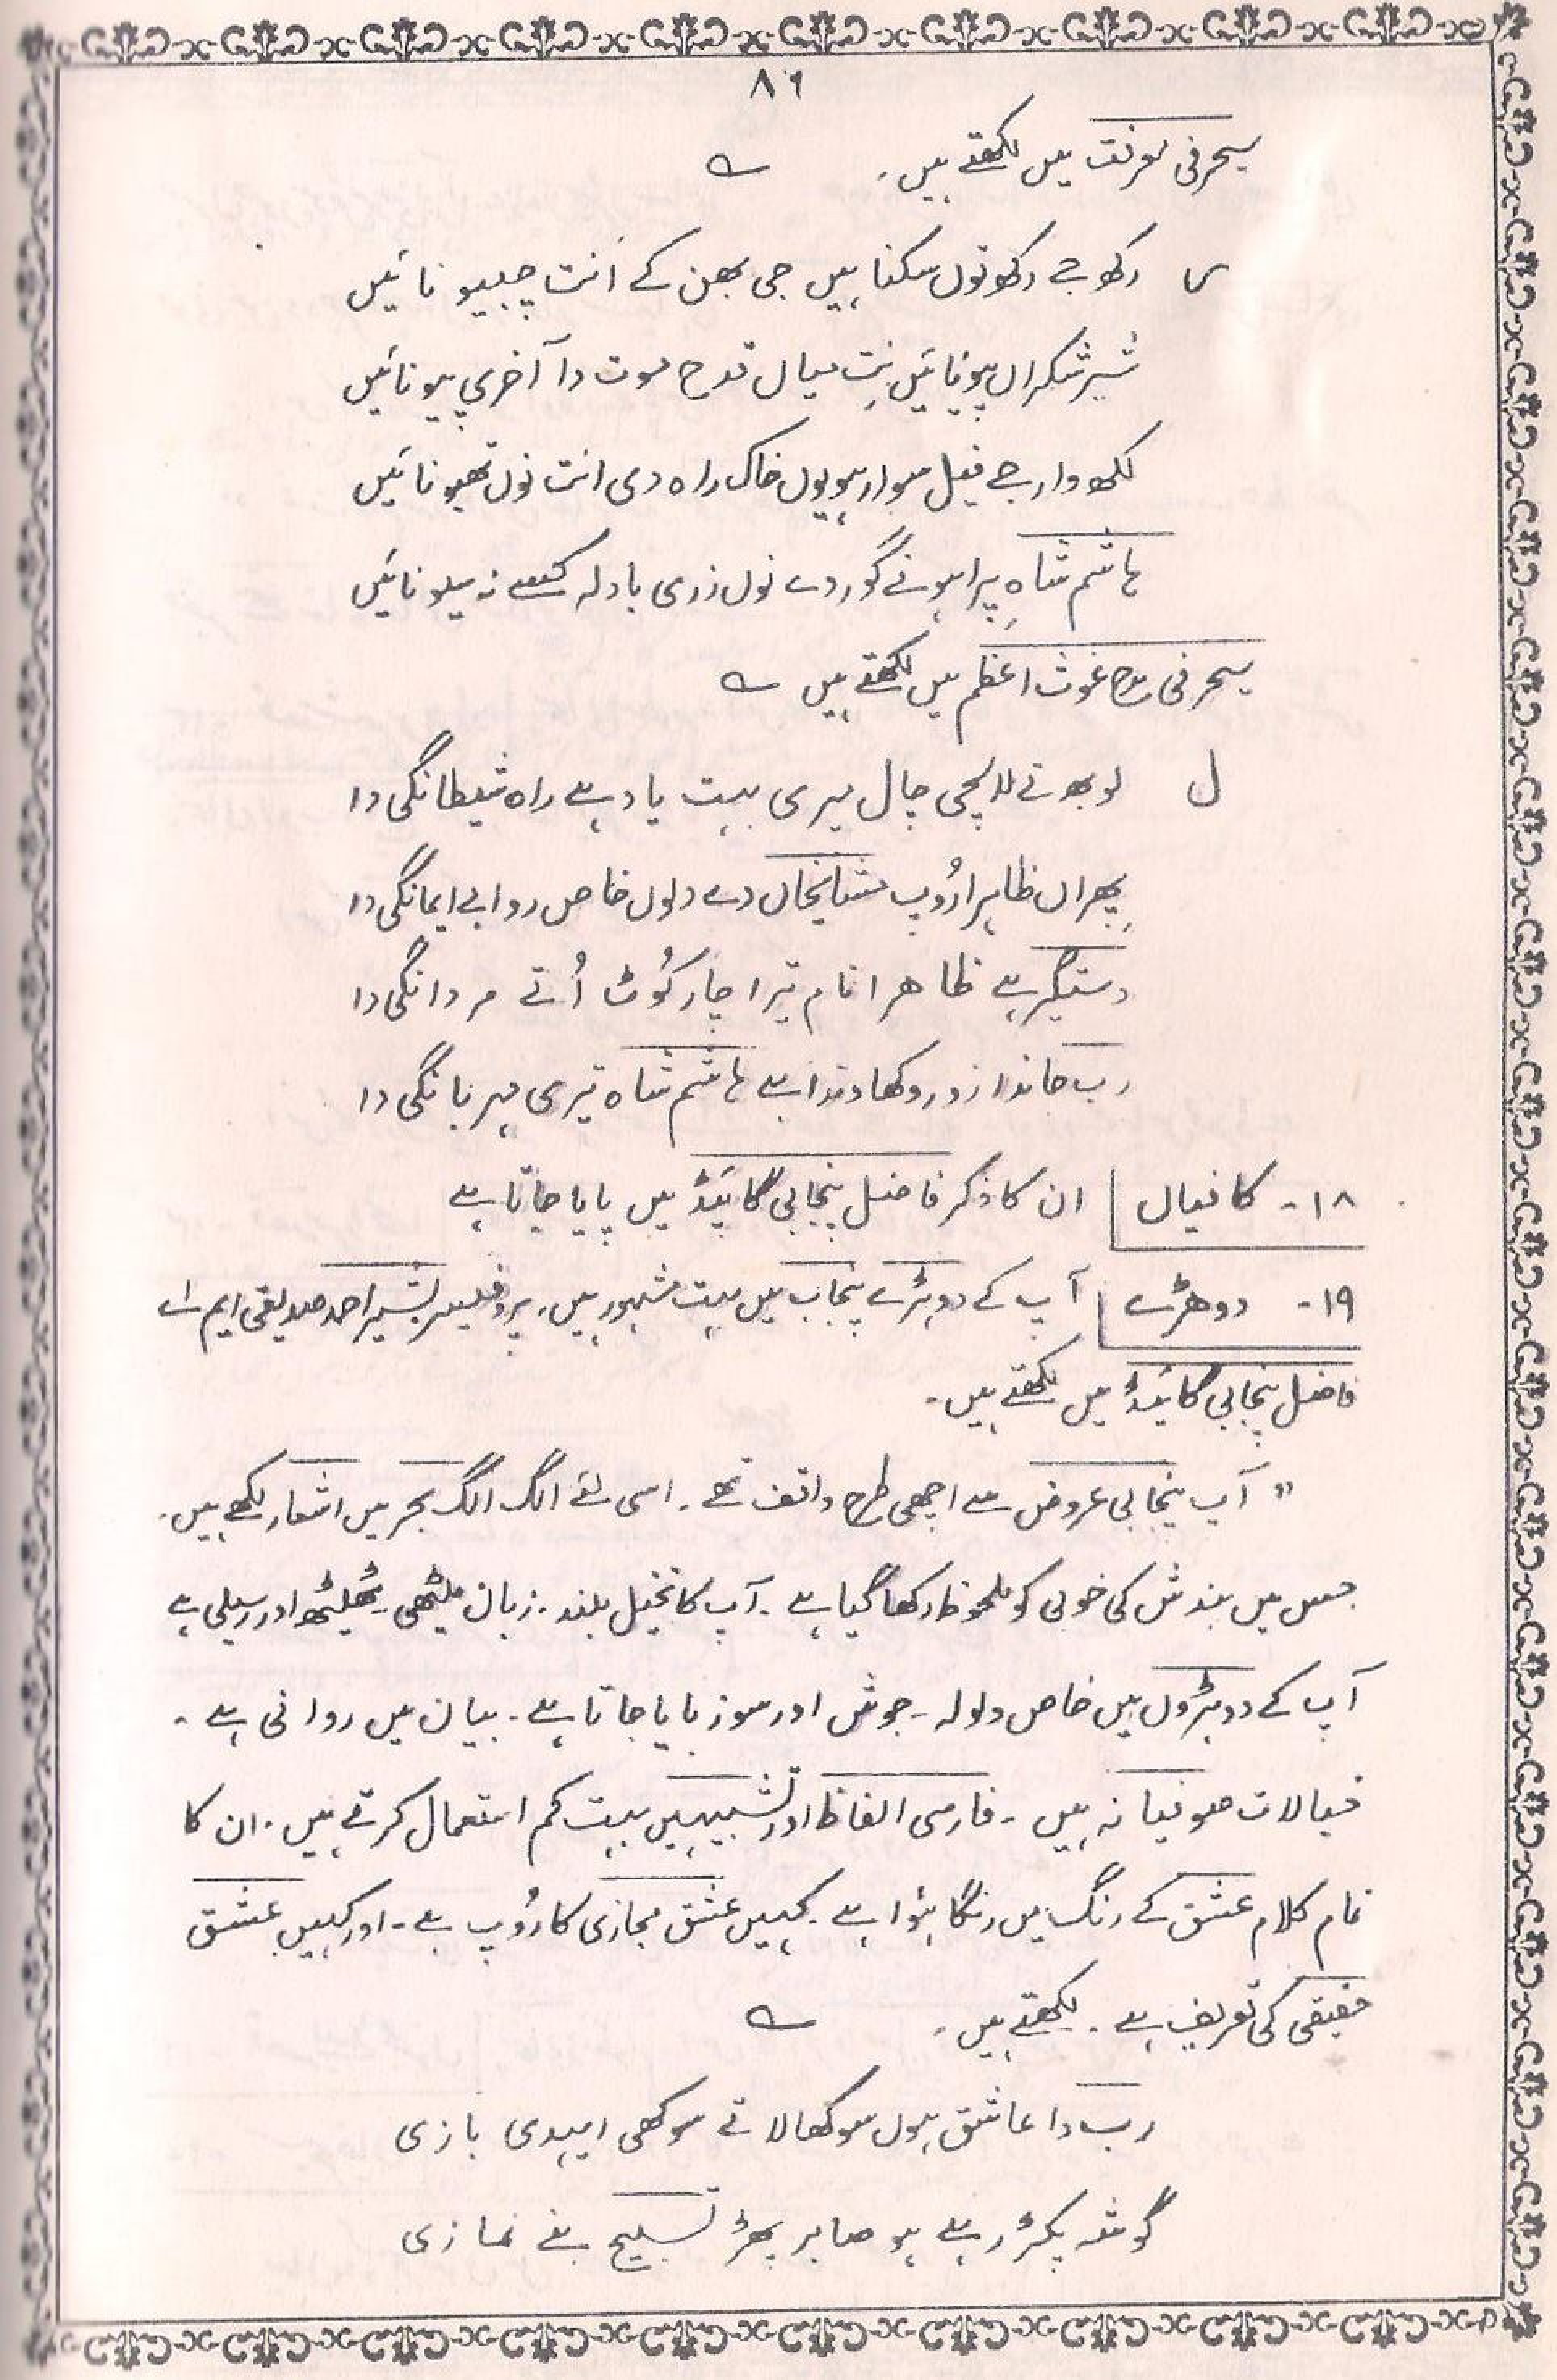 ۸۹
سیحرفی معرفت میں لکھتے ہیں۔ ؎
س رکھ جے رکھ توں سکنا ہیں جی بھن کے اَنت چببیو نائیں
شیر شکراں پیونائیں نِت میاں قدح موت دا آخری پیونائیں
لکھ وار جے فیل سوار ہویوں خاک راہ دی انت نوں تھیو نائیں
ہاشم شاہ پرا ہونے گور دے نوں زری بادلہ کسے نہ سیو نائیں
سیحرفی مدح غوث اعظم میں لکھتے ہیں ؎
ل لوبھ تے لالچی چال میری بہت یاد ہے راہ شیطانگی دا
پھراں ظاہرا رُوپ مشائخاں دے دلوں خاص روا بے ایمانگی دا
دستگیر ہے ظاھرا نام تیرا چار کُوٹ اُتے مردانگی دا
رب جاندا زور وکھاوندا ہے ہاشم شاہ تیری مہربانگی دا
۱۸۔ کافیاں ان کا ذکر فاضل پنجابی گائیڈ میں پایا جاتا ہے
۱۹۔ دوھڑے آپ کے دوہڑے پنجاب میں بہت مشہور ہیں۔ پروفیسر بشیر احمد صدیقی ایم اے
فاضل پنجابی گائیڈ میں لکھتے ہیں۔
" آپ پنجابی عروض سے اچھی طرح واقف تھے۔ اسی لئے الگ الگ بحر میں اشعار لکھے ہیں۔
جس میں بندش کی خوبی کو ملحوظ رکھا گیا ہے۔ آپ کا تخیل بلند۔ زبان میٹھی۔ ٹھیٹھ اور رسیلی ہے
آپ کے دوہڑوں میں خاص ولولہ۔ جوش اور سوز پایا جاتا ہے۔ بیان میں روانی ہے۔
خیالات صوفیانہ ہیں۔ فارسی الفاظ اور تشبیہیں بہت کم استعمال کرتے ہیں۔ ان کا
تمام کلام عشق کے رنگ میں رنگا ہوٗا ہے۔ کہیں عشق مجازی کا رُوپ ہے۔ اور کہیں عشق
حقیقی کی تعریف ہے۔ لکھتے ہیں۔ ؎
رب دا عاشق ہون سوکھالا تے سوکھی ایہدی بازی
گوشہ پکڑ رہے ہو صابر پھڑ تسبیح بنے نمازی